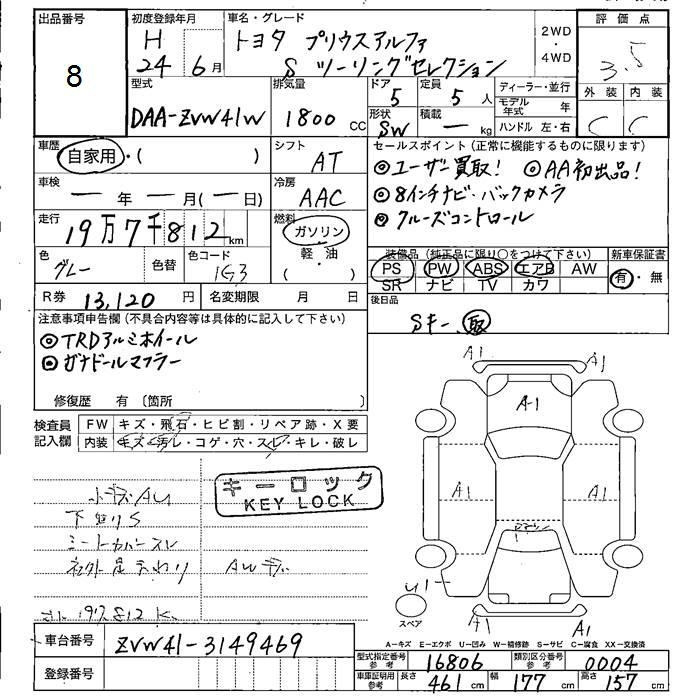 出品番号
8
初度登録年月
H
24 6月
車名・グレード
トヨタ プリウスアルファ
S ツーリングセレクション
2WD
・
4WD
評価点
3.5
外装 内装
C C
型式
DAA-ZVW41W
排気量
1800 CC
ドア
5
定員
5人
形状
SW
積載
— kg
ディーラー・並行
モデル年式 年
ハンドル 左・右
車歴
自家用・( )
シフト
AT
車検
— 年 — 月(— 日)
冷房
AAC
走行
19万7千812km
燃料
ガソリン
軽・油
( )
色
グレー
色替
色コード
1G3
R券 13,120円
名変期限 月 日
セールスポイント(正常に機能するものに限る)
◎ユーザー買取! ◎AA初出品!
◎8インチナビ・バックカメラ
◎クルーズコントロール
装備品(純正品に限り○をつけて下さい)
PS PW ABS エアB AW
SR ナビ TV カワ
新車保証書
有・無
後日品
Sキー 取
注意事項申告欄(不具合内容等は具体的に記入して下さい)
◎TRDアルミホイール
◎ガナドールマフラー
修復歴 有〔箇所
検査員記入欄
FW キズ・飛石・ヒビ割・リペア跡・X要
内装 キズ・汚レ・コゲ・穴・スレ・キレ・破レ
キーロック
KEY LOCK
小キズAU
下廻りS
シートカバースレ
A1 A1
A-1
A1 A1
U1
スペア
A1 A1
A-キズ E-エクボ U-凹み W-補修跡 S-サビ C-腐食 XX-交換済
車台番号 ZVW41-3149469
登録番号
型式指定番号 参考 16806
類別区分番号 参考 0004
車庫証明用 参考 長さ 461cm 幅 177cm 高さ 157cm